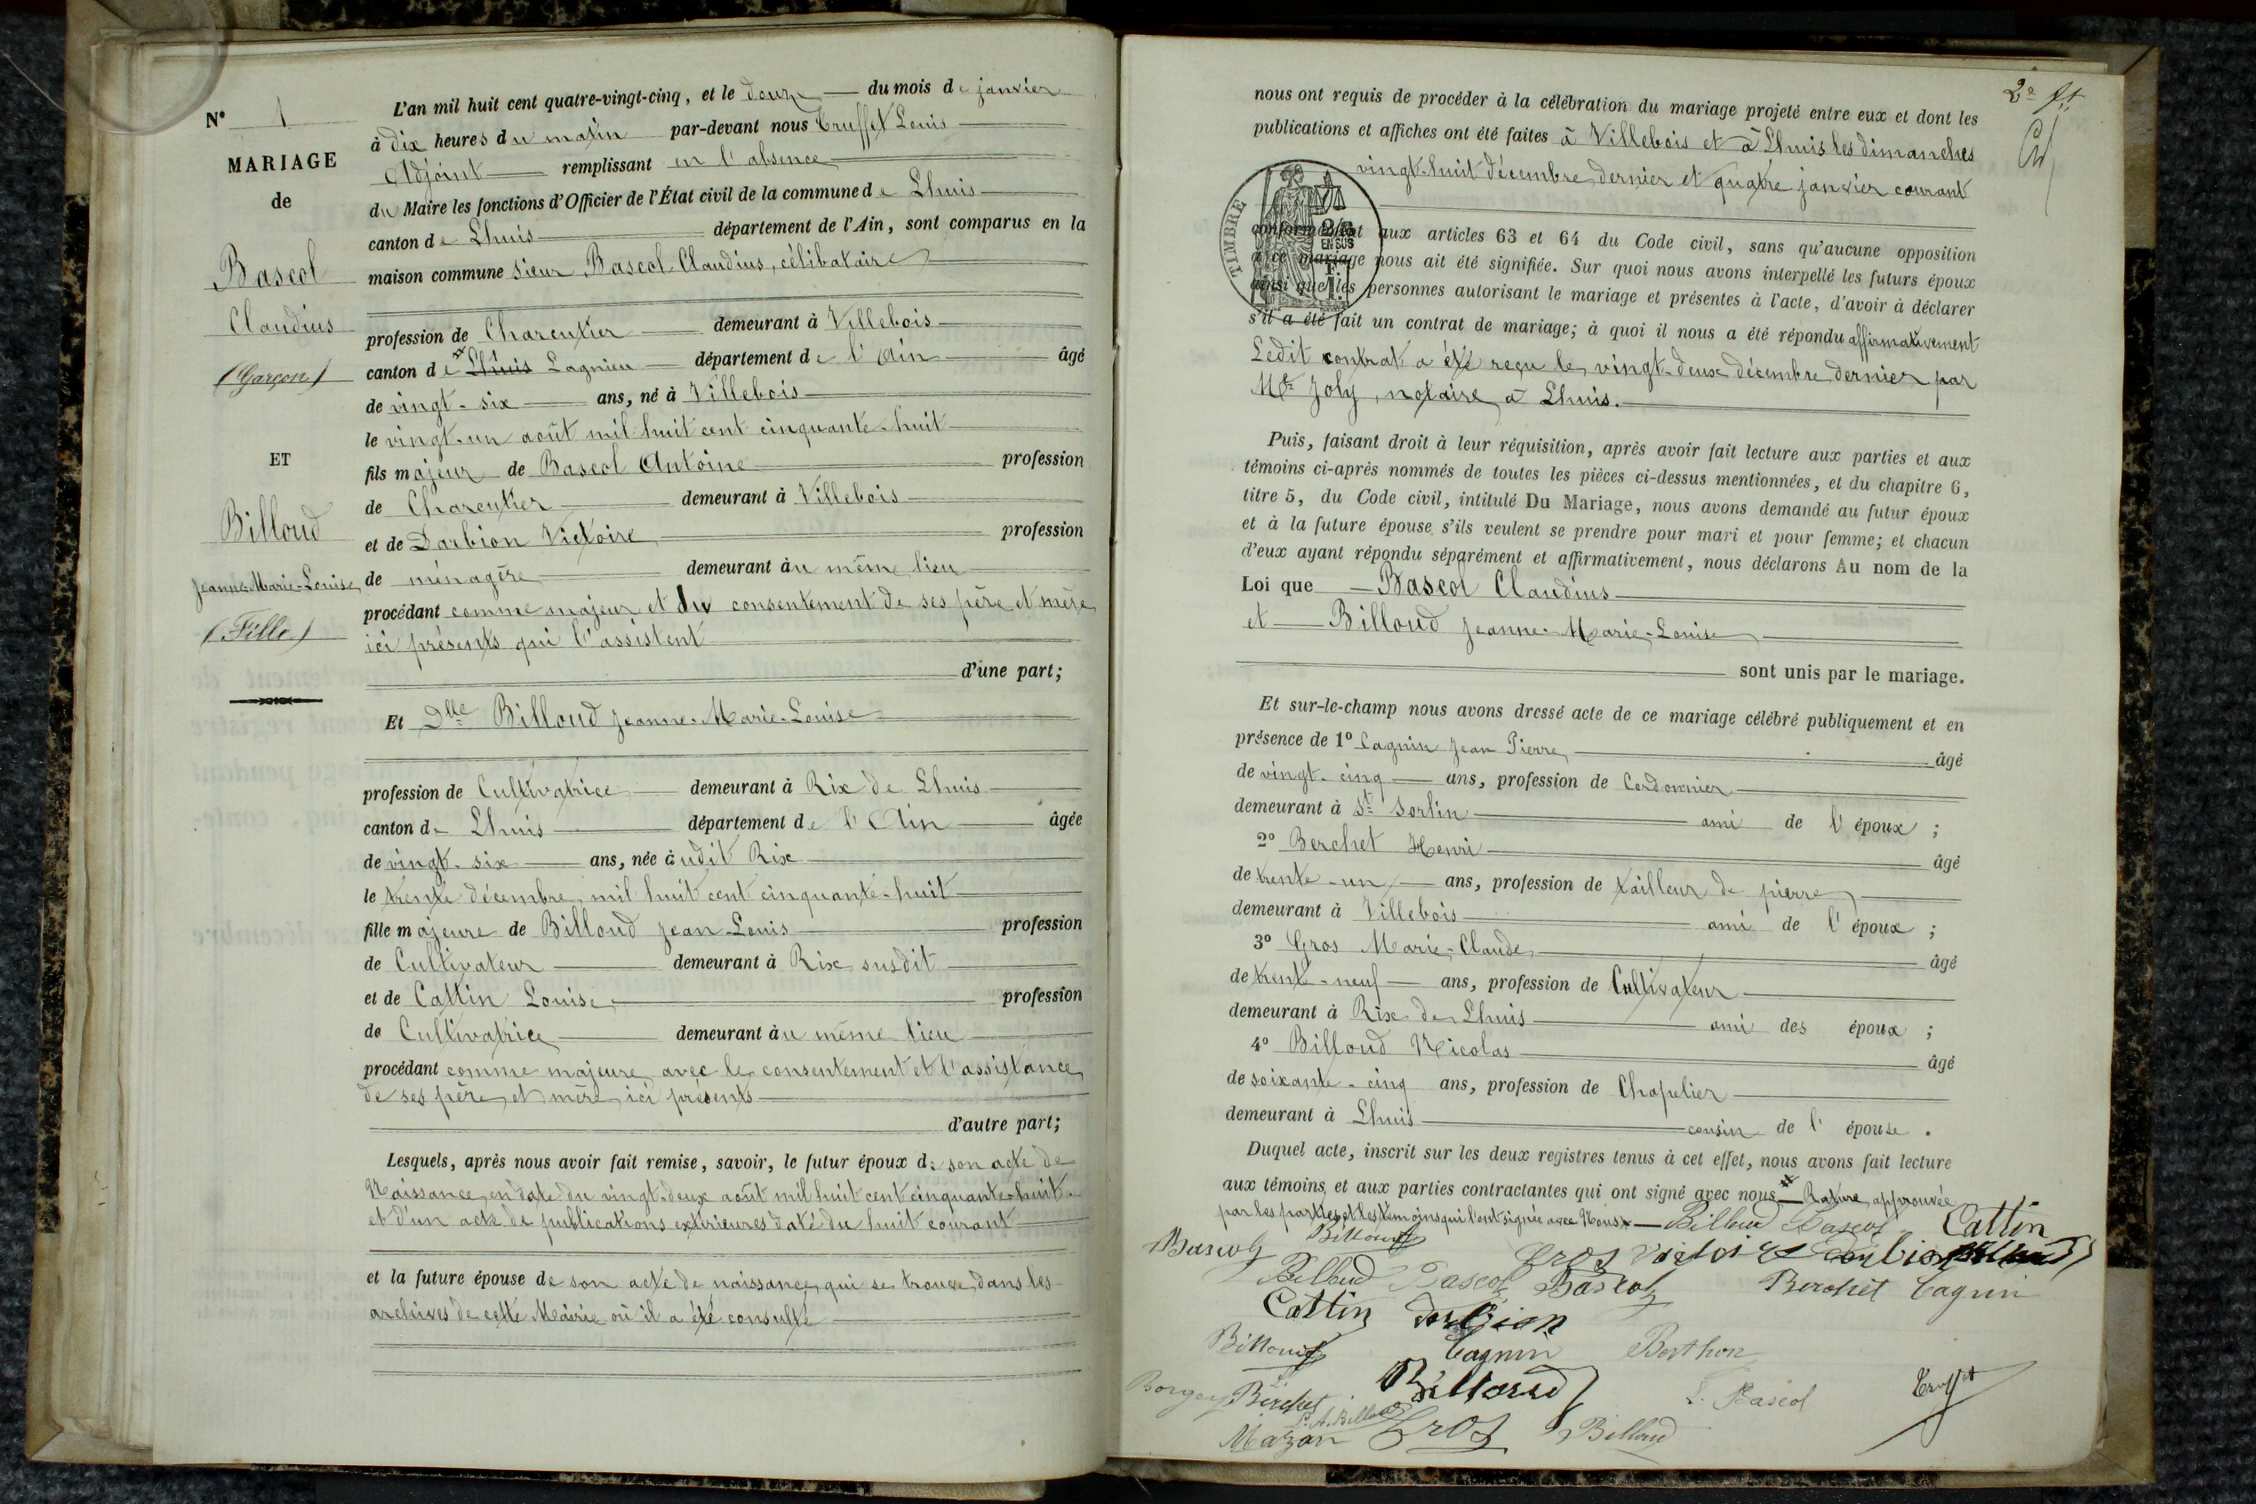 N° 1
MARIAGE
de
Bascol
Claudius
(Garçon)
ET
Billoud
Jeanne-Marie-Louise
(Fille)
L'an mil huit cent quatre-vingt-cinq, et le douze du mois de janvier
à dix heures du matin par-devant nous Truffet Louis
Adjoint remplissant en l'absence
du Maire les fonctions d'Officier de l'État civil de la commune de Lhuis
canton de Lhuis département de l'Ain, sont comparus en la
maison commune sieur Bascol Claudius, célibataire
profession de Charcutier demeurant à Villebois
canton de Lhuis Lagnieu département de l'Ain âgé
de vingt-six ans, né à Villebois
le vingt-un août mil huit cent cinquante-huit
fils majeur de Bascol Antoine profession
de Charcutier demeurant à Villebois
et de Darbion Victoire profession
de ménagère demeurant àu même lieu
procédant comme majeur et du consentement de ses père et mère
ici présents qui l'assistent
d'une part;
Et Dlle Billoud Jeanne-Marie-Louise
profession de Cultivatrice demeurant à Rix de Lhuis
canton de Lhuis département de l'Ain âgée
de vingt-six ans, née àudit Rix
le trente décembre mil huit cent cinquante-huit
fille majeure de Billoud Jean-Louis profession
de Cultivateur demeurant à Rix susdit
et de Cattin Louise profession
de Cultivatrice demeurant àu même lieu
procédant comme majeure avec le consentement et l'assistance
de ses père et mère ici présents
d'autre part;
Lesquels, après nous avoir fait remise, savoir, le futur époux de son acte de
Naissance en date du vingt-deux août mil huit cent cinquante-huit
et d'un acte de publications extérieures daté du huit courant
et la future épouse de son acte de naissance qui se trouve dans les
archives de cette Mairie où il a été consulté
2e ft
nous ont requis de procéder à la célébration du mariage projeté entre eux et dont les
publications et affiches ont été faites à Villebois et à Lhuis les dimanches
vingt-huit décembre dernier et quatre janvier courant
TIMBRE
2/10
EN SUS
conformément aux articles 63 et 64 du Code civil, sans qu'aucune opposition
à ce mariage nous ait été signifiée. Sur quoi nous avons interpellé les futurs époux
ainsi que les personnes autorisant le mariage et présentes à l'acte, d'avoir à déclarer
s'il a été fait un contrat de mariage; à quoi il nous a été répondu affirmativement
Ledit contrat a été reçu le vingt-deux décembre dernier par
Me Joly, notaire à Lhuis.
Puis, faisant droit à leur réquisition, après avoir fait lecture aux parties et aux
témoins ci-après nommés de toutes les pièces ci-dessus mentionnées, et du chapitre 6,
titre 5, du Code civil, intitulé Du Mariage, nous avons demandé au futur époux
et à la future épouse s'ils veulent se prendre pour mari et pour femme; et chacun
d'eux ayant répondu séparément et affirmativement, nous déclarons Au nom de la
Loi que Bascol Claudius
et Billoud Jeanne-Marie-Louise
sont unis par le mariage.
Et sur-le-champ nous avons dressé acte de ce mariage célébré publiquement et en
présence de 1° Cagnin Jean Pierre âgé
de vingt-cinq ans, profession de Cordonnier
demeurant à St Sorlin ami de l'époux ;
2° Berchet Henri âgé
de trente-un ans, profession de tailleur de pierre
demeurant à Villebois ami de l'époux ;
3° Gros Marie-Claude âgé
de trente-neuf ans, profession de Cultivateur
demeurant à Rix de Lhuis ami des époux ;
4° Billoud Nicolas âgé
de soixante-cinq ans, profession de Chapelier
demeurant à Lhuis cousin de l'épouse .
Duquel acte, inscrit sur les deux registres tenus à cet effet, nous avons fait lecture
aux témoins et aux parties contractantes qui ont signé avec nous Rature approuvée
par les parties et les témoins qui l'ont signée avec Nous Billoud Bascol Cattin
Bascol Billoud Gros Victoire Darbion
Billoud Bascol Bascol Berchet Cagnin
Cattin Darbion
Billoud Cagnin Berthon
Borgey Berchet Billoud L. Bascol Truffet
Mazan Gros Billoud